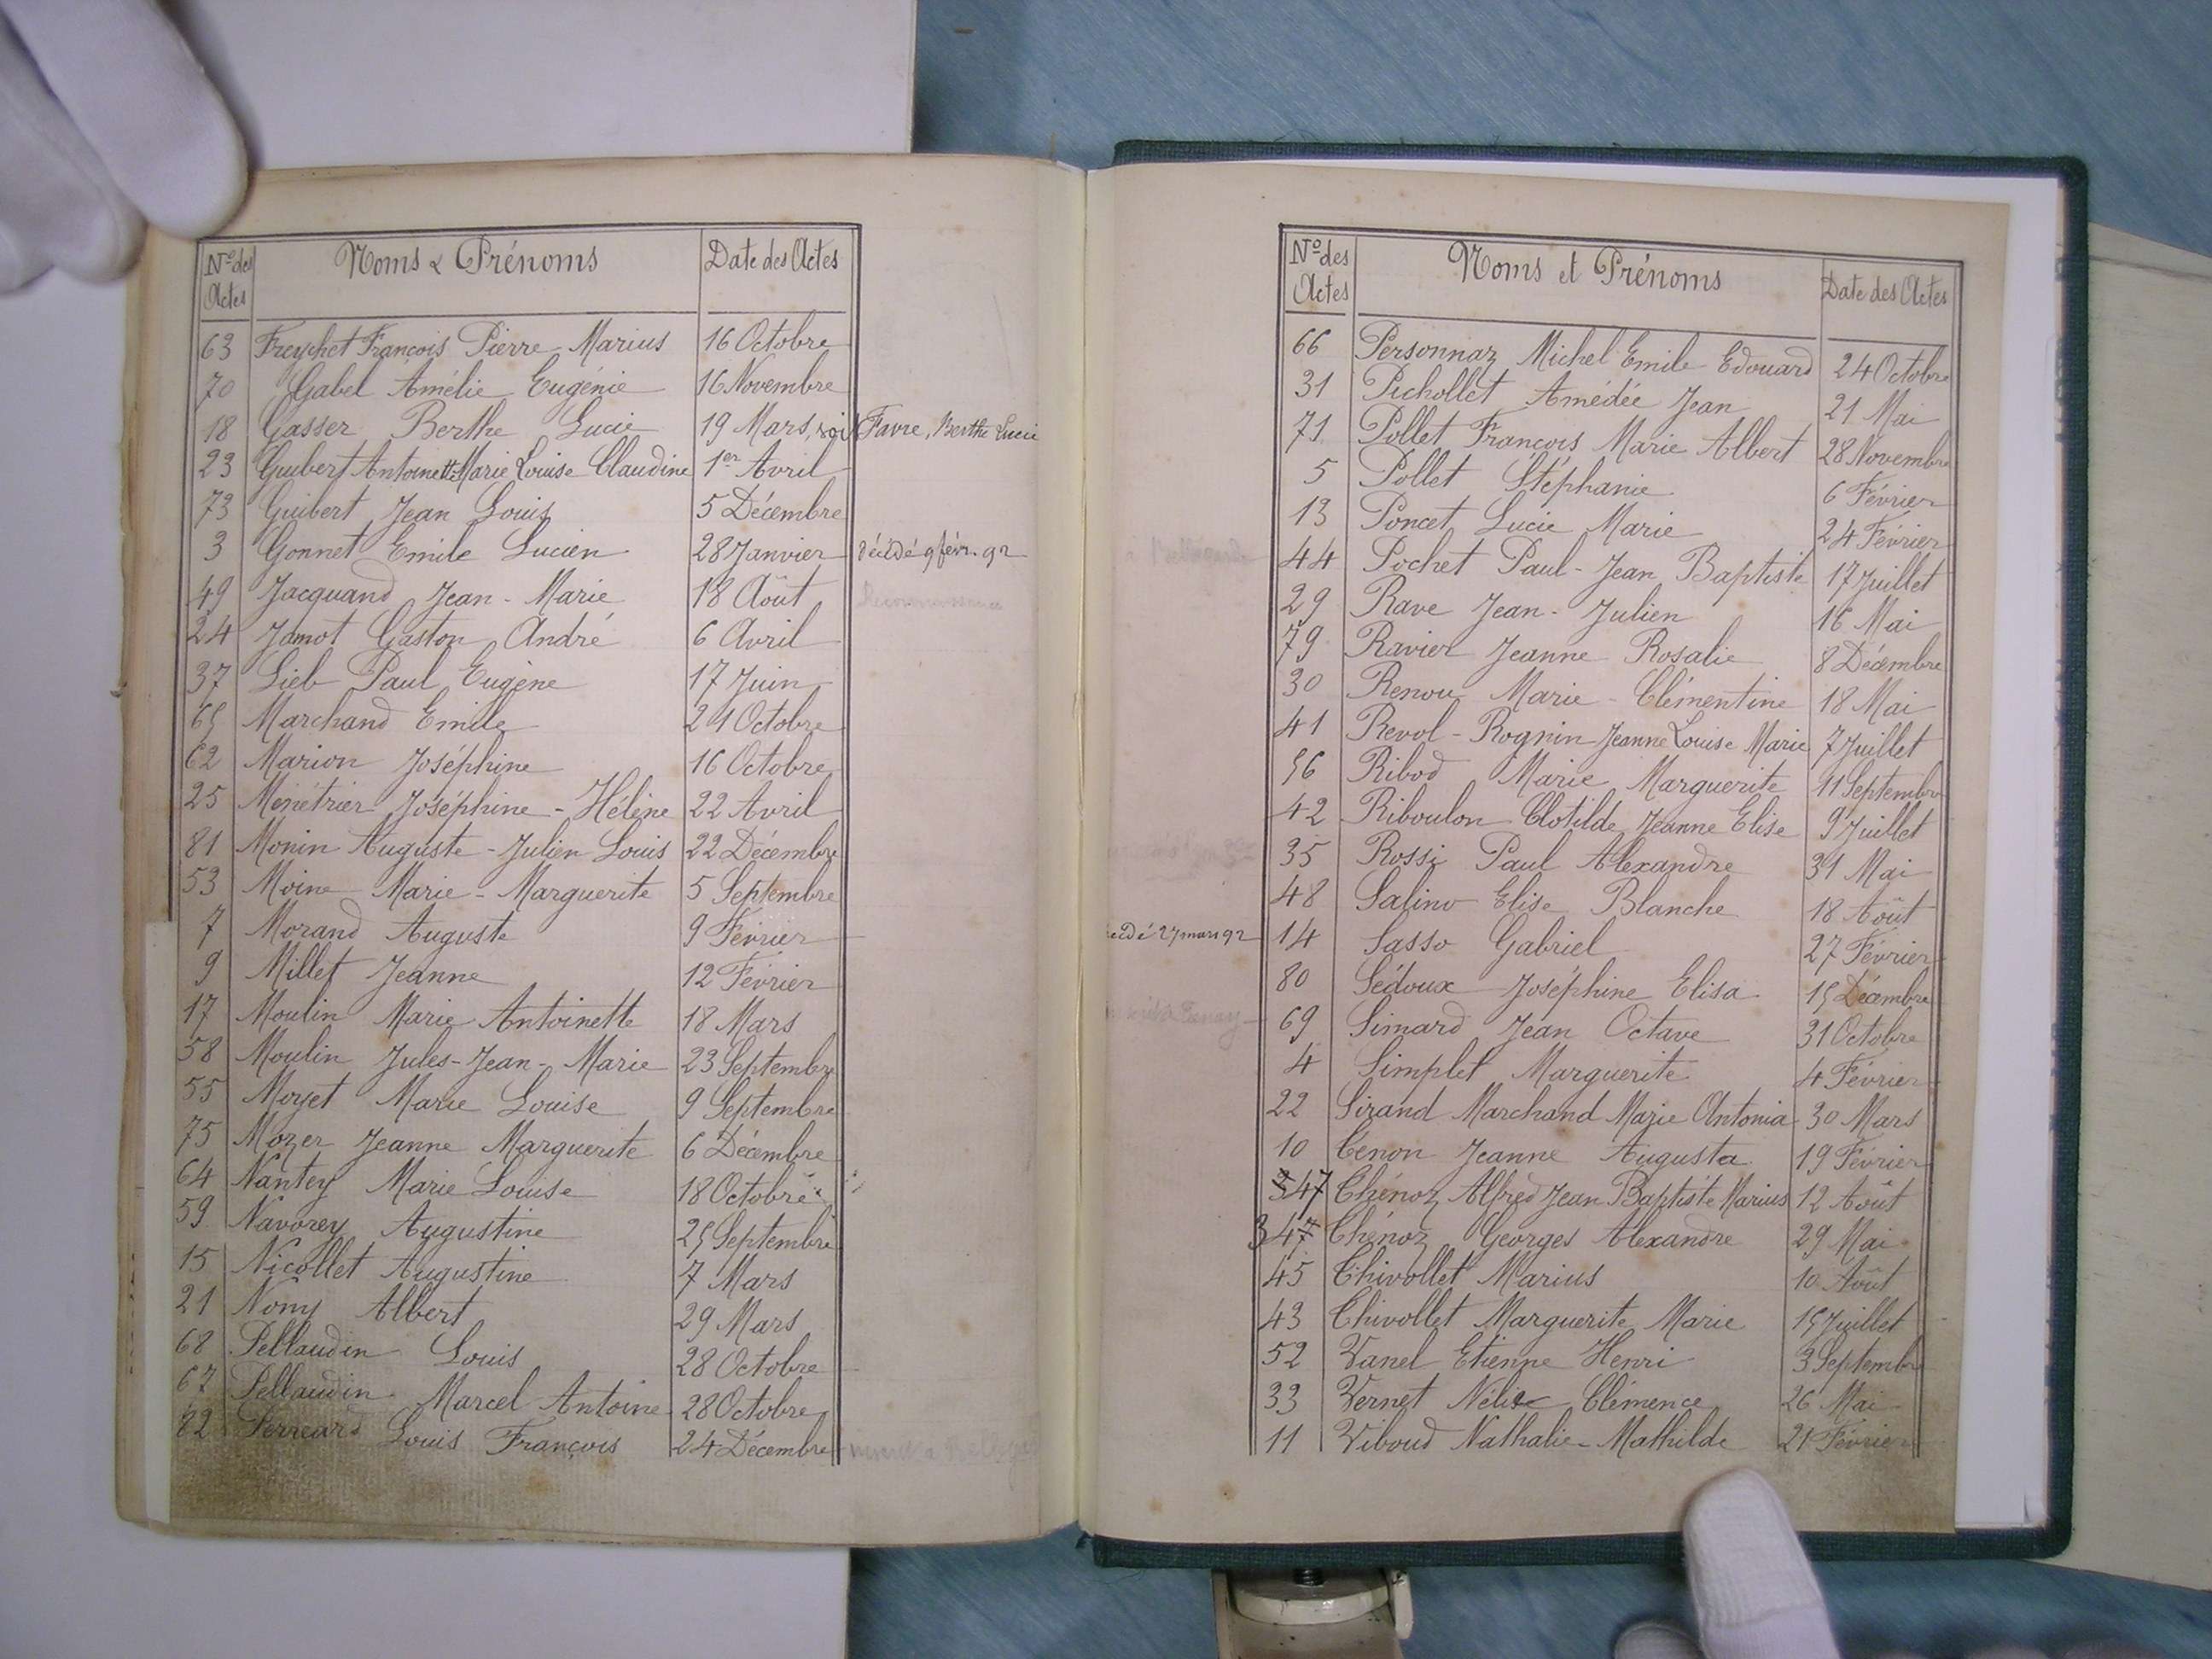 Nos des Actes Noms & Prénoms Date des Actes
63 Freychet François Pierre Marius 16 Octobre
70 Gabel Amélie Eugénie 16 Novembre
18 Gasser Berthe Lucie 19 Mars, Favre, Berthe Lucie
23 Guibert Antoinette Marie Louise Claudine 1er Avril
73 Guibert Jean Louis 5 Décembre
3 Gonnet Emile Lucien 28 Janvier décédé 9 févr. 92
49 Jacquand Jean-Marie 18 Août
24 Jamot Gaston André 6 Avril
37 Lieb Paul Eugène 17 Juin
65 Marchand Emile 21 Octobre
62 Marion Joséphine 16 Octobre
25 Menétrier Joséphine-Hélène 22 Avril
81 Monin Auguste-Julien Louis 22 Décembre
53 Moine Marie-Marguerite 5 Septembre
7 Morand Auguste 9 Février
9 Millet Jeanne 12 Février
17 Moulin Marie Antoinette 18 Mars
58 Moulin Jules-Jean-Marie 23 Septembre
55 Moyet Marie Louise 9 Septembre
75 Mozer Jeanne Marguerite 6 Décembre
64 Nantey Marie Louise 18 Octobre
59 Navorey Augustine 25 Septembre
15 Nicollet Augustine 7 Mars
21 Nony Albert 29 Mars
68 Pellaudin Louis 28 Octobre
67 Pellaudin Marcel Antoine 28 Octobre
82 Perreard Louis François 24 Décembre
Nos des Actes Noms et Prénoms Date des Actes
66 Personnaz Michel Emile Edouard 24 Octobre
31 Pichollet Amédée Jean 21 Mai
71 Pollet François Marie Albert 28 Novembre
5 Pollet Stéphanie 6 Février
13 Poncet Lucie Marie 24 Février
44 Pochet Paul-Jean Baptiste 17 Juillet
29 Rave Jean-Julien 16 Mai
79 Ravier Jeanne Rosalie 8 Décembre
30 Renou Marie-Clémentine 18 Mai
41 Revol-Rognin Jeanne Louise Marie 7 Juillet
56 Ribod Marie Marguerite 11 Septembre
42 Riboulon Clotilde Jeanne Elise 9 Juillet
35 Rossi Paul Alexandre 31 Mai
48 Salino Elise Blanche 18 Août
décédé 27 mars 92 14 Sasso Gabriel 27 Février
80 Sédoux Joséphine Elisa 15 Décembre
69 Simard Jean Octave 31 Octobre
4 Simplet Marguerite 4 Février
22 Sirand Marchand Marie Antonia 30 Mars
10 Tenon Jeanne Augusta 19 Février
47 Thénoz Alfred Jean Baptiste Marius 12 Août
34 Thénoz Georges Alexandre 29 Mai
45 Thivollet Marius 10 Août
43 Thivollet Marguerite Marie 15 Juillet
52 Vanel Etienne Henri 3 Septembre
33 Vernet Nélie Clémence 26 Mai
11 Viboud Nathalie-Mathilde 21 Février